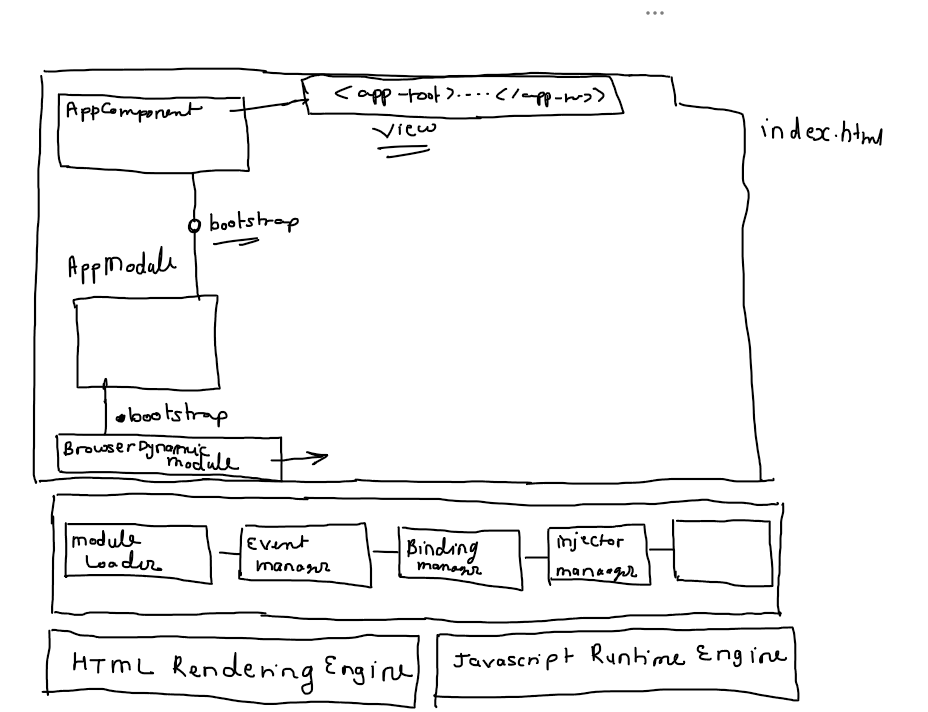 AppComponent
<app-root>.....</app-
View
index.html
bootstrap
AppModule
.bootstrap
BrowserDynamic
module
module
Loader
Event
manager
Binding
manager
injector
manager
HTML Rendering Engine
Javascript Runtime Engine